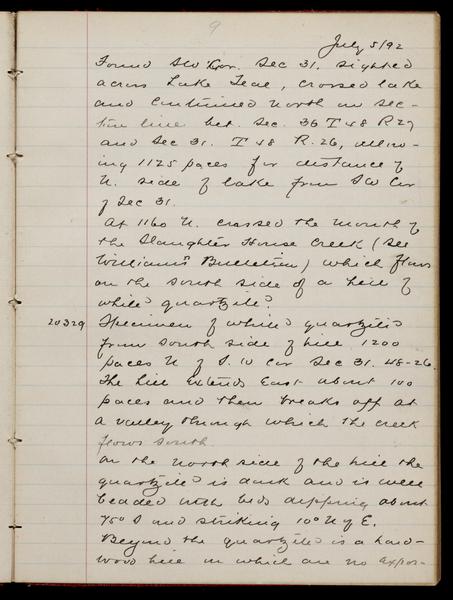 9
July 5/92
Found SW Cor. Sec 31. Sighted
across Lake Teal, crossed lake
and continued north on sec-
tion line bet. Sec. 36 T 48 R 27
and Sec 31. T 48 R. 26, allow-
ing 1125 paces for distance of
N. side of lake from SW Cor
of Sec 31.
At 1160 N. crossed the mouth of
the Slaughter House Creek (See
Williams Bulletin) which flows
on the south side of a hill of
white quartzite.
20329 Specimen of white quartzite
from south side of hill 1200
paces N of S.W Cor Sec 31. 48-26.
The hill extends East about 100
paces and then breaks off at
a valley through which the creek
flows south.
On the north side of the hill the
quartzite is dark and is well
beaded with beds dipping about
75° S and striking 10° N of E.
Beyond the quartzite is a hard-
wood hill in which are no expos-